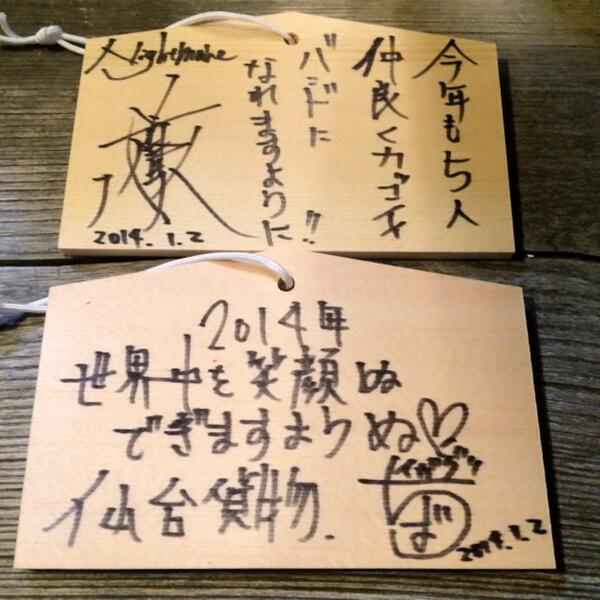 今年も5人
仲良くカゴチ
バンドに
なれますように!!
Nightmare
2014.1.2
2014年
世界中を笑顔ぬ
でぎますようぬ♡
仙台貨物.
イガグリ
ば
2014.1.2